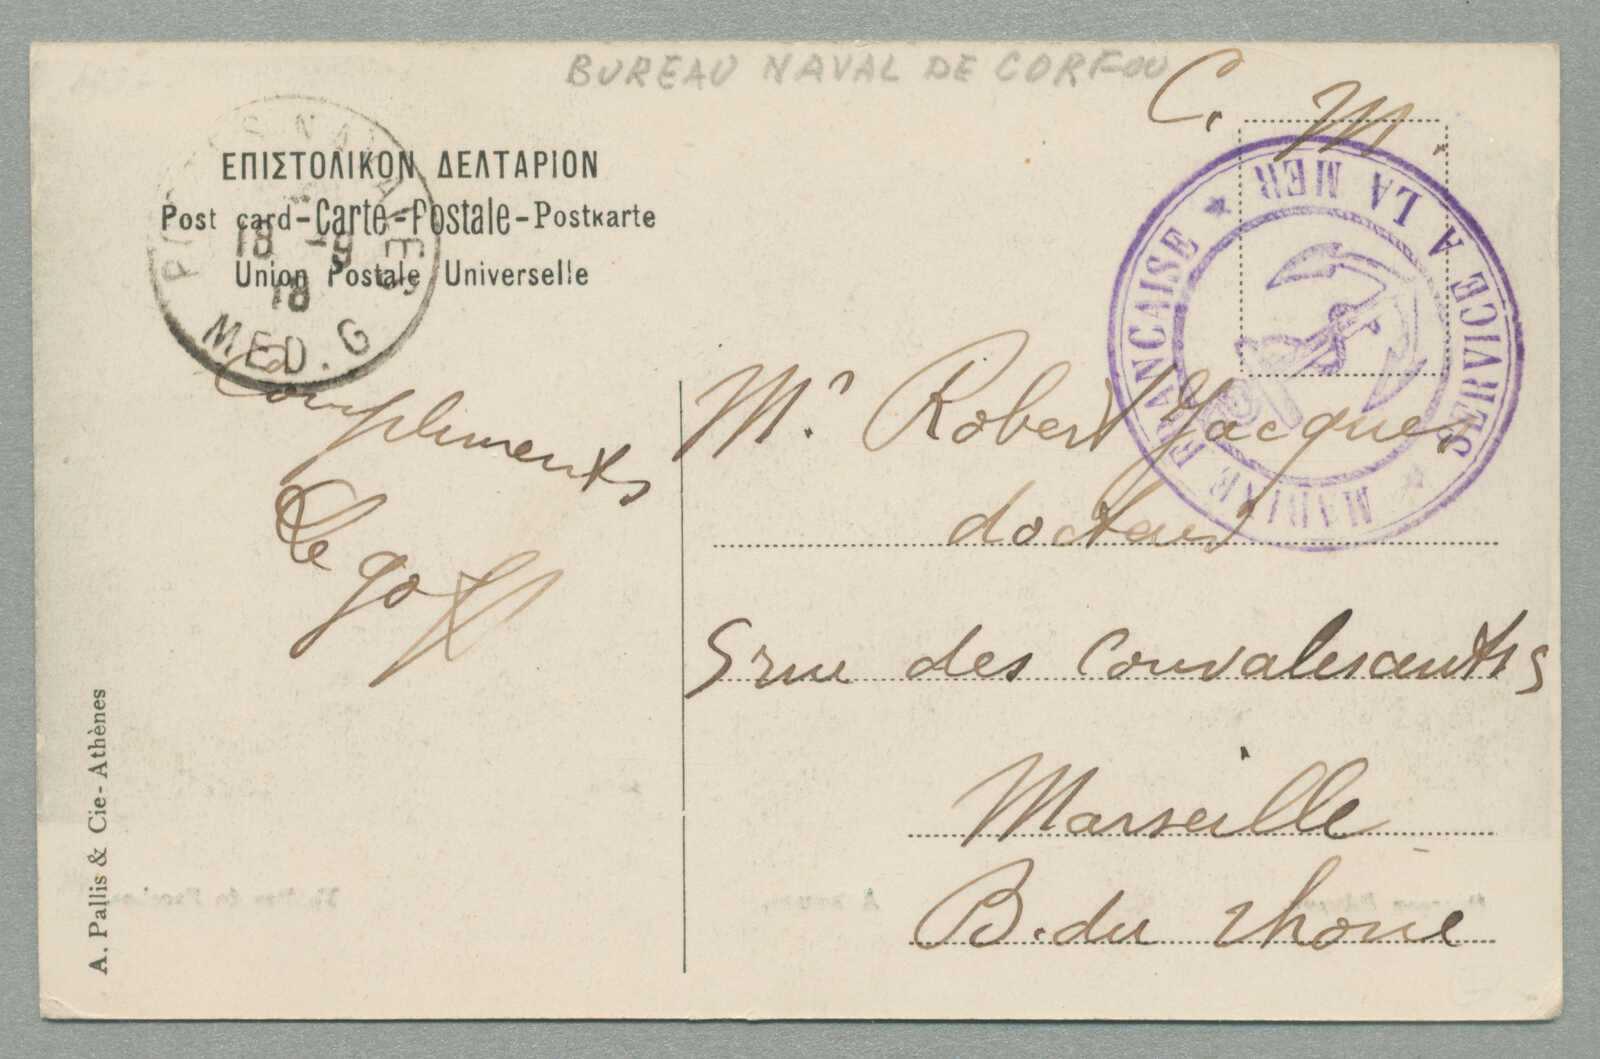 BUREAU NAVAL DE CORFOU
C. M.
ΕΠΙΣΤΟΛΙΚΟΝ ΔΕΛΤΑΡΙΟΝ
Post card-Carte-Postale-Postkarte
Union Postale Universelle
POSTES NAVALES
18 -9
18
MED. G
MARINE FRANCAISE ★ SERVICE A LA MER ★
Compliments
Le goff
Mr Robert Jacques
docteur
5 rue des Convalescents
Marseille
B. du rhone
A. Pallis & Cie- Athènes